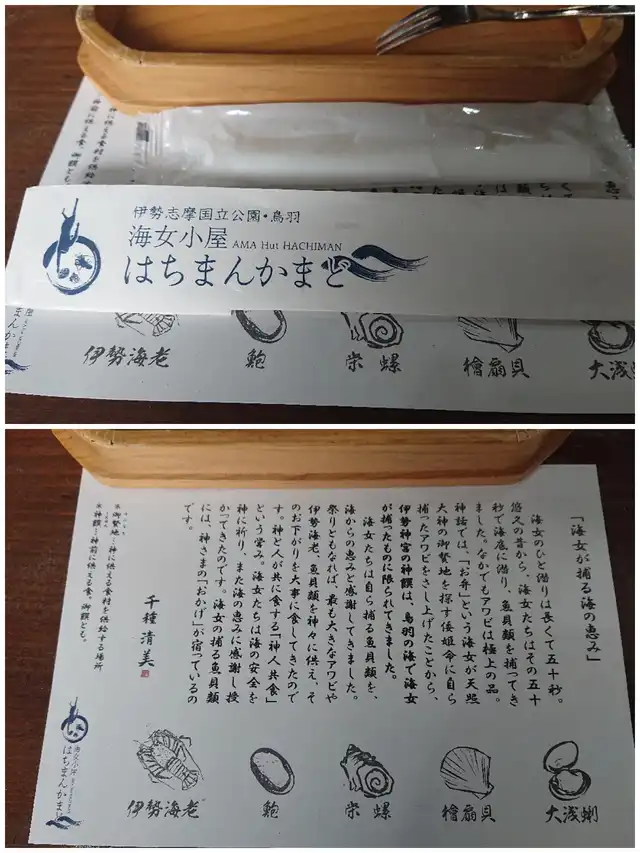 伊勢志摩国立公園・鳥羽
海女小屋 AMA Hut HACHIMAN
はちまんかまど
伊勢海老
鮑
栄螺
檜扇貝
大浅蜊
「海女が捕る海の恵み」
海女のひと潜りは長くて五十秒。
悠久の昔から、海女たちはその五十
秒で海底に潜り、魚貝類を捕ってき
ました。なかでもアワビは極上の品。
神話では、「お弁」という海女が天照
大神の御贄地を探す倭姫命に自ら
捕ったアワビをさし上げたことから、
伊勢神宮の神饌は、鳥羽の海で海女
が捕ったものに限られてきました。
海女たちは自ら捕る魚貝類を、
海からの恵みと感謝してきました。
祭りともなれば、最も大きなアワビや
伊勢海老、魚貝類を神々に供え、そ
のお下がりを大事に食してきたので
す。神と人が共に食する「神人共食」
という営み。海女たちは海の安全を
神に祈り、また海の恵みに感謝し授
かってきたのです。海女の捕る魚貝類
には、神さまの「おかげ」が宿っているの
です。
千種清美
※御贄地…神に供える食材を供給する場所
※神饌…神前に供える食。御饌とも。
海女小屋
はちまんかまど
伊勢海老
鮑
栄螺
檜扇貝
大浅蜊